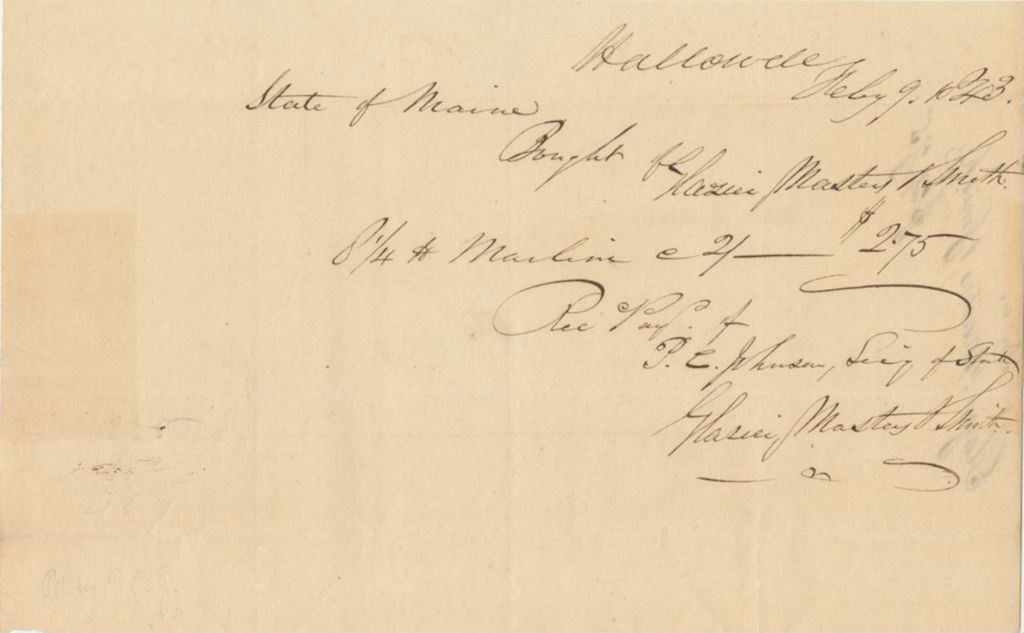 Hallowell
Feby 9. 1843.
State of Maine
Bought of
Glazier, Masters & Smith.
8 1/4 # Marline @ 2/ — $2.75
Rec Payt. of
P. C. Johnson, Secy of State
Glazier, Masters & Smith.
Pd by P. C. J.